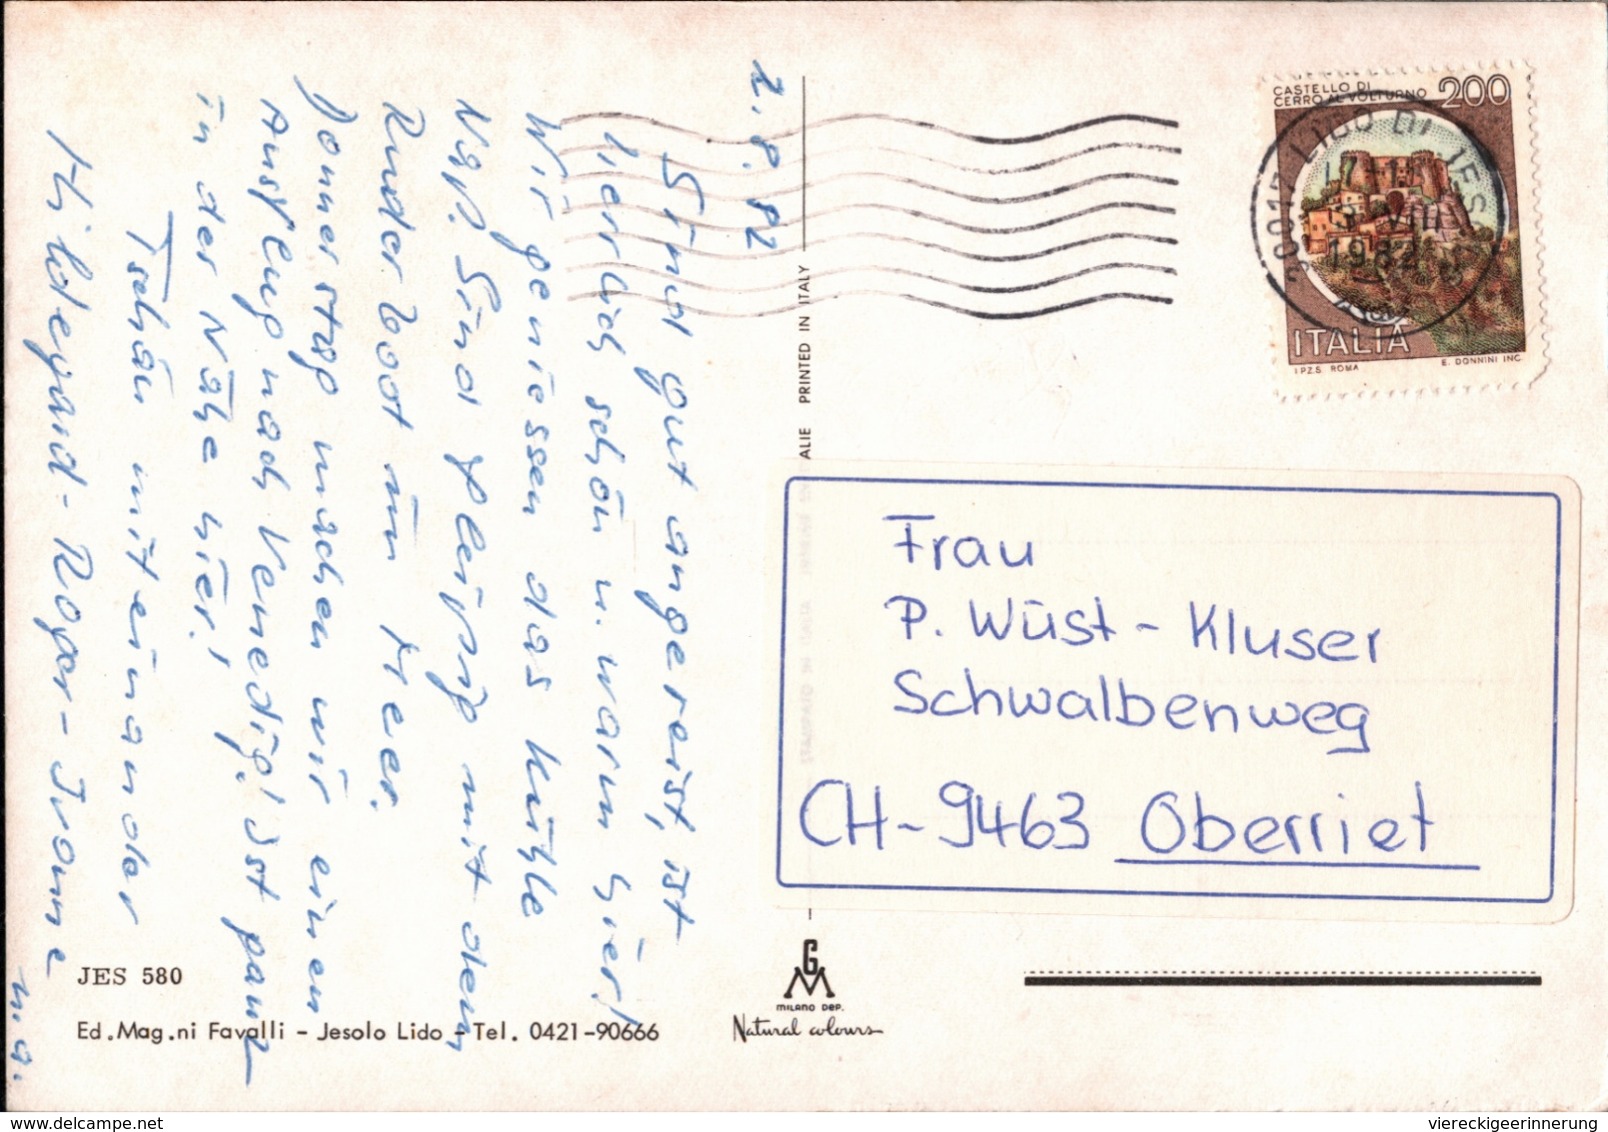 2.8.82
Sind gut angereist, ist
herrlich schön u. warm hier!
Wir geniessen das kühle
Nass. Sind fleissig mit dem
Ruderboot im Meer.
Donnerstag machen wir einen
Ausflug nach Venedig! Ist ganz
in der Nähe hier!
Tschau miteinander
Hildegard - Roger - Ivonne
u.a.
JES 580
Ed.Mag.ni Favalli - Jesolo Lido - Tel. 0421-90666
ALIE PRINTED IN ITALY
GM
MILANO DEP.
Natural colours
CASTELLO DI
CERRO AL VOLTURNO 200
30017 LIDO DI JESOLO
VIII
1982
ITALIA
I.P.Z.S. ROMA E. DONNINI INC.
Frau
P. Wüst - Kluser
Schwalbenweg
CH-9463 Oberriet
viereckigeerinnerung